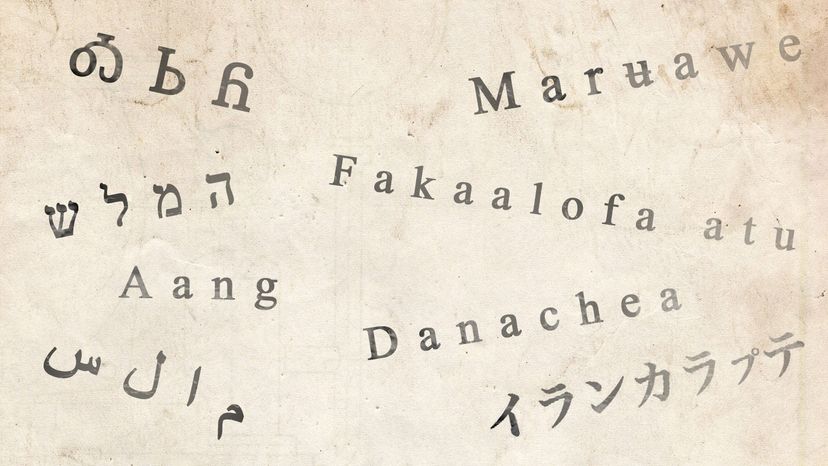 ᎣᏏᏲ
Marʉawe
שלמה
Fakaalofa atu
Aang
Danachea
سلام
イランカラㇷ゚テ